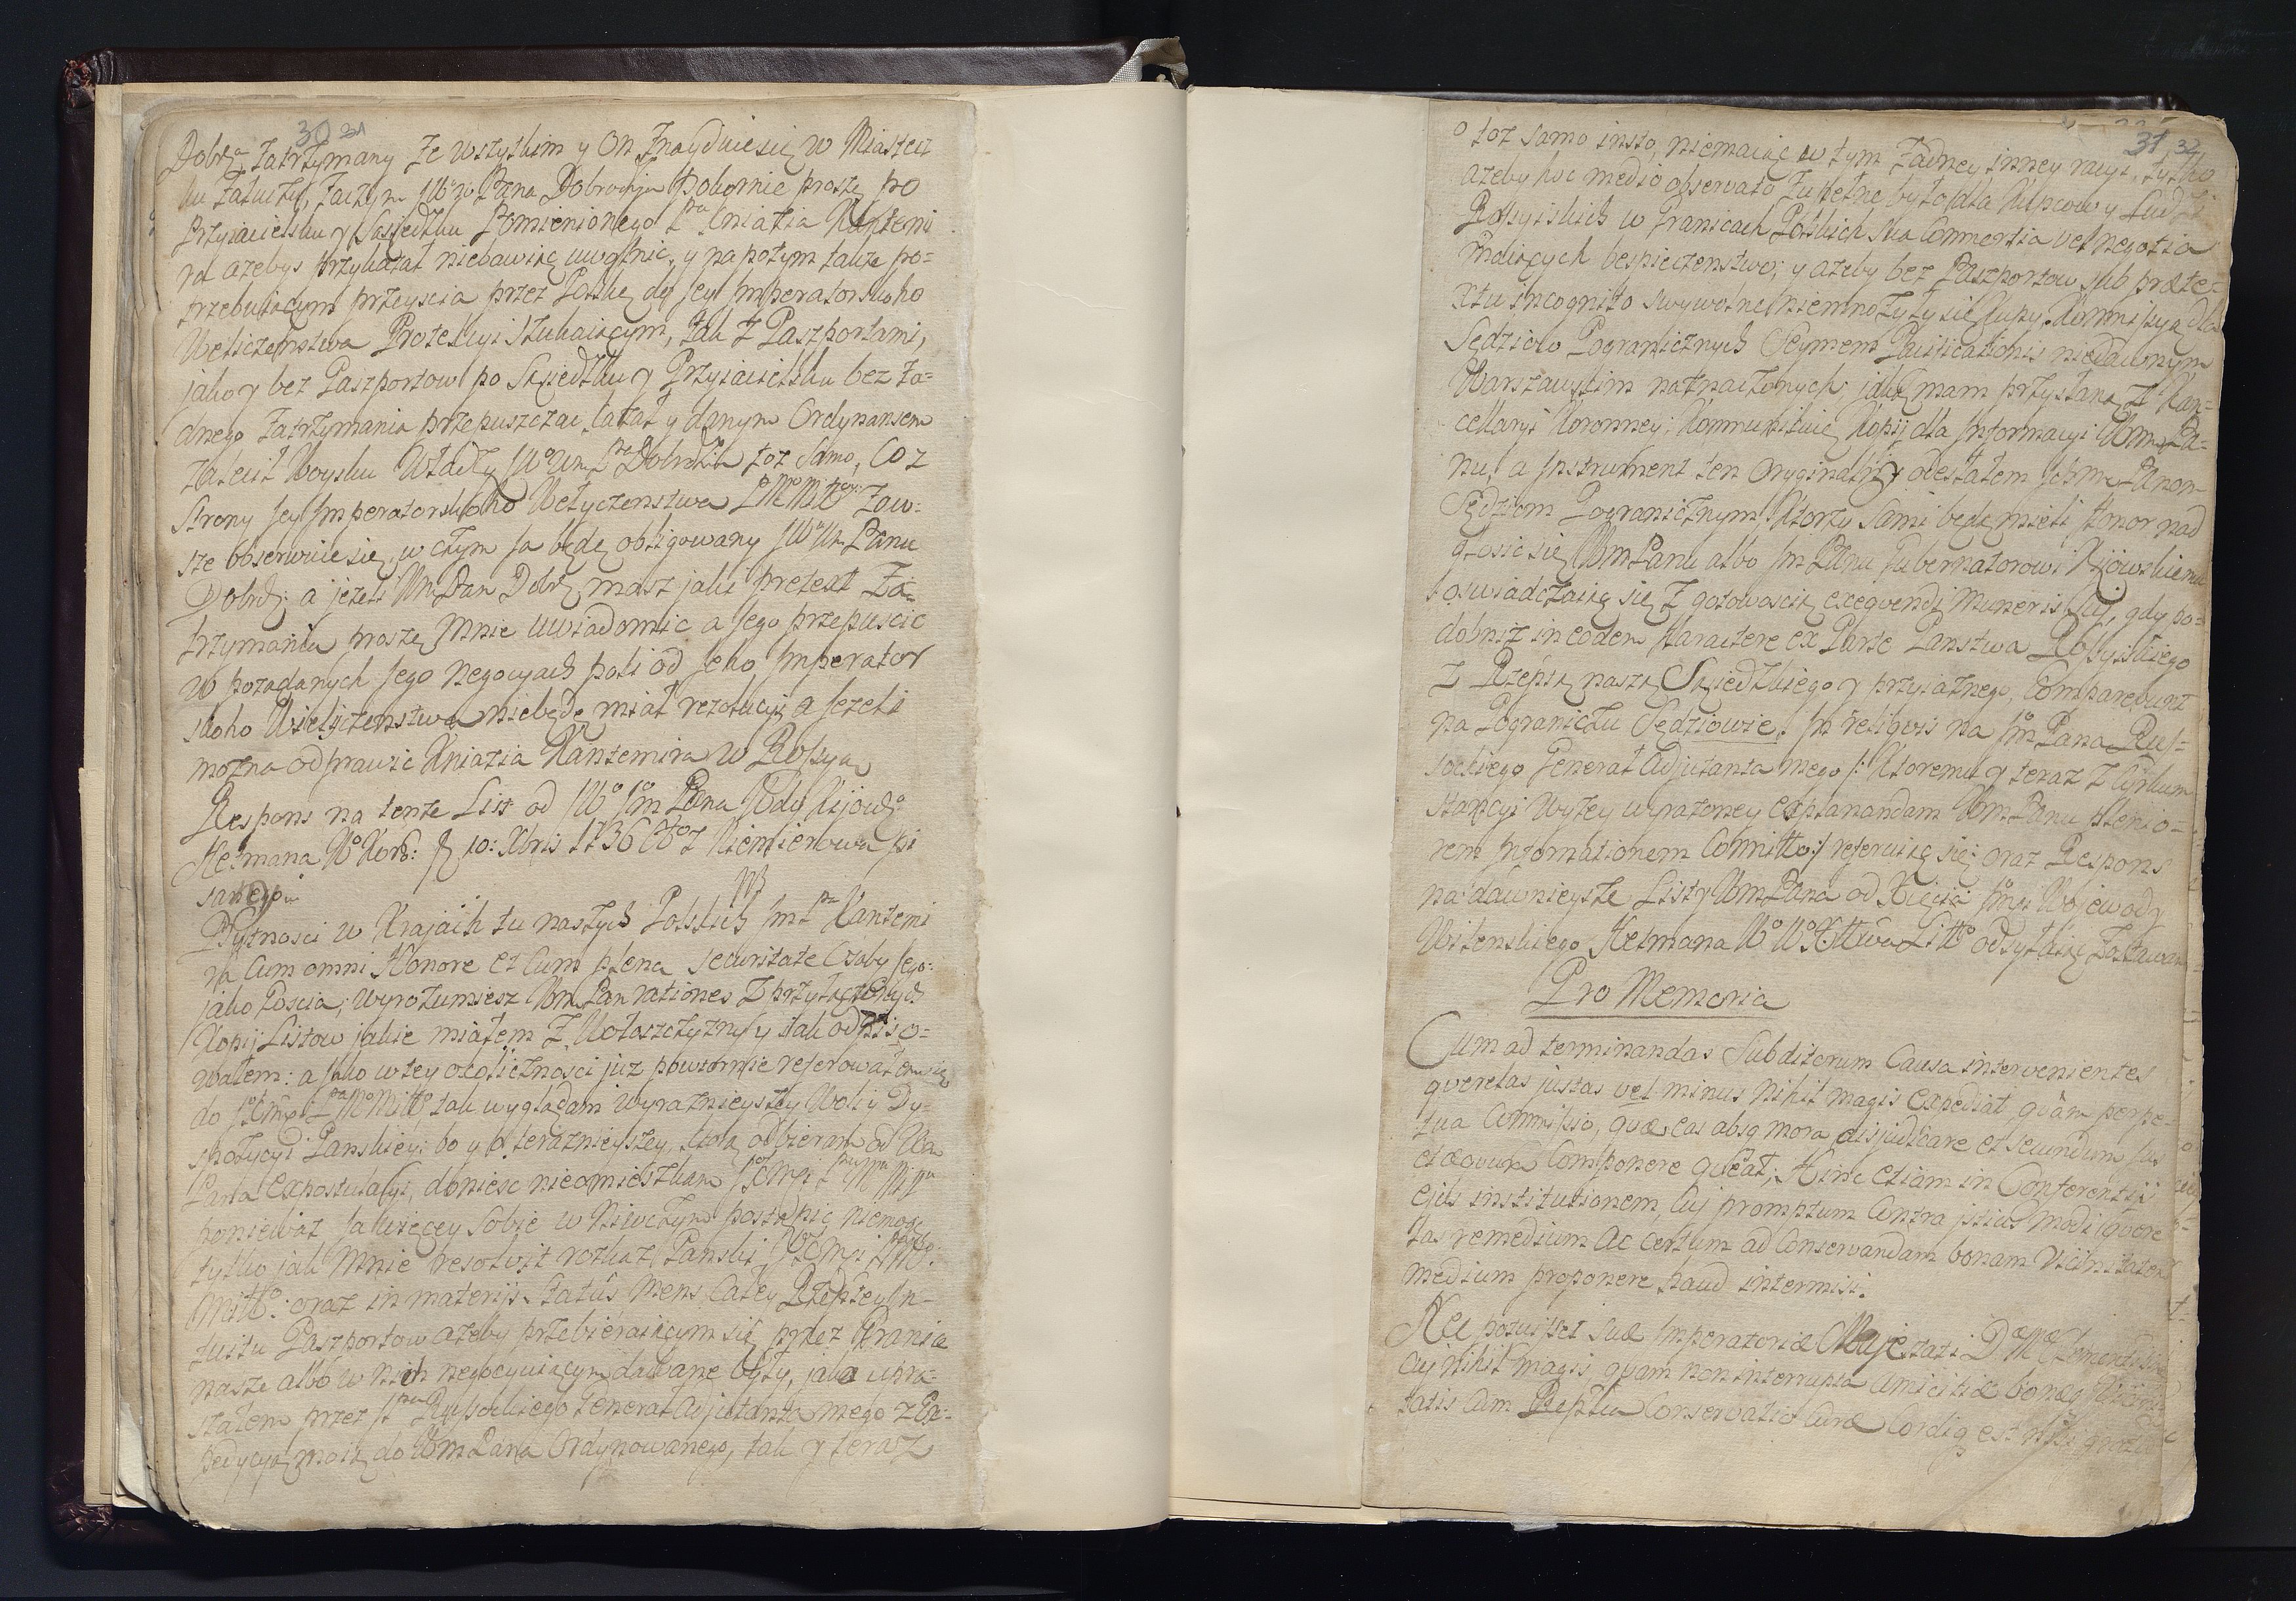 30 31
Dobrą zatrzymany ze wszytkim y on znayduie się w Miastecz
ku Załuczu, zaczym JW͞go Pana Dobrodzija pokornie proszę po
Przyiacielsku y Sąsiedzku Pomienionego Pna Kniazia Kantemi
ra azebys przykazał niebawiąc uwolnic, y napotym także po-
trzebuiącym przeyscia przez Polskę do Jey Imperatorskoho
Weliczenstwa Protekcyi Szukaiącym, tak z Paszportami,
jako y bez Paszportow po Sąsiedzku y Przyiacielsku bez ża-
dnego zatrzymania przepuszczac kazał y danym Ordynansem
zalecił Woysku Władzy JWo Wm Pna Dobrodzia toż Samo, Co z
Strony Jey Imperatorskoho Weliczenstwa PMMMiłło zaw-
sze obserwuie się, w czym Ja będę obligowany JWo Wm Panu
Dobrdz: a jeżeli Wm Pan Dobrdz masz jaki pretext Za-
trzymania proszę Mnie uwiadomic a Jego przepuscic
w pożądanych Jego Negocyach poki od Jeho Imperator
skoho Wieliczenstwa niebędę miał rezolucyi a Jezeli
można odprawic Kniazia Kantemira w Rossyą
Respons na tenże List od JWo Jm Pana Wdy Kijowgo
Hetmana Wo Kor: D 10: Xbris 1736 Ao z Niemierowa pi
sanego
Bytnosci w Krajach tu naszych Polskich Jm Pna Kantemi
ra Cum omni Honore et Cum plena securitate Osoby Jego:
jako Goscia, wyrozumiesz Wm Pan rationes z przyłączonych
Kopij Listow jakie miałem z Wołoszczyzny y jak odpiso-
wałem: a jako w tey okolicznosci juz powtornie referowałem się
do JoKmci PnaMoMiłło, tak wyglądam wyraznieyszey Woli y Dy-
spozycyi Panskiey: bo y o teraznieyszey, ktorą odbieram od Wm
Pana expostulacyi, doniesc nieomieszkam JoKmci PnuMMiłu
poniewaz Ja więcey Sobie w Niwczym postąpic niemogę
tylko jak Mnie resolwit rozkaz Panski JoKmci PnaMo:
Miłło: oraz in materijs Status, Mens Całey Rzeptey in-
tuitu Paszportow azeby przebieraiącym się przez Granice
nasze albo w Nich negocyuiącym dawane były, jako upra-
szałem przez Jm Pna Russockiego Generał Adjutanta mego z Ex-
pedycyą moią do Wm Pana Ordynowanego, tak y teraz
31 32
o toż samo insto, niemaiąc w tym żadney inney racyi, tylko
azeby hoc medio observato zupełne było dla Kupcow y Ludzi
Rossyiskich w Granicach Polskich Sua Commertia vel negotia
maiących bespieczenstwo; y azeby bez Paszportow sub præte-
xtu incognito swywolne niemnożyły się Kupy. Kommissya dla
Sędziow Pogranicznych Seymem Pacificationis niedawnym
Warszawskim naznaczonych, jaką mam przysłaną z Kan-
cellaryi Koronney, Kommunikuię Kopij dla Informacyi Wm Pa-
nu, a Instrument ten Oryginalny odesłałem Ichm Panom
Sędziom Pogranicznym, Ktorzy Sami będą mieli Honor nad
głosic się Wm Panu albo Jm Panu Gubernatorowi Kijowskiemu
oswiadczaiąc się z gotowoscią exequendi Muneris Sui, gdy po-
dobniż in eodem Charactere ex Parte Panstwa Rossyiskiego
z Rzeptą naszą Sąsiedzkiego y przyiaznego, Comparebunt
na Pograniczu Sędziowie. In reliquis na Jm Pana Rus-
sockiego Generał Adjutanta mego /: Ktoremu y teraz z Cyrkum
stancyi wyżey wyrażoney explanandam Wm Panu plenio-
rem Informationem Committo :/ referuię się; oraz Respons
na dawnieysze Listy Wm Pana od Xięcia Jmci Wojewody
Witenskiego Hetmana Wo W X Litło odsyłaiąc Zostawam
Pro Memoria
Cum ad terminandas Subditorum Causa intervenientes
querelas justas vel minus Nihil magis expediat, quàm perpe-
tua Commissio, quæ eas absq mora disjudicare et secundum Jus
et æquum Componere queat; Hinc etiam in Conferentijs
ejus institutionem, Cuj promptum Contra istius modi quere
las remedium ac certum ad Conservandam bonam Vicinitatem
medium proponere haud intermisi.
Nec potuisset Suæ Imperatoriæ Majestati DæMæ Clementissimæ
Cuj nihil magis, quam non interrupta Amicitiæ bonæq Vicini
tatis Cum Repltu Conservatio Curæ Cordiq est nisi gratu